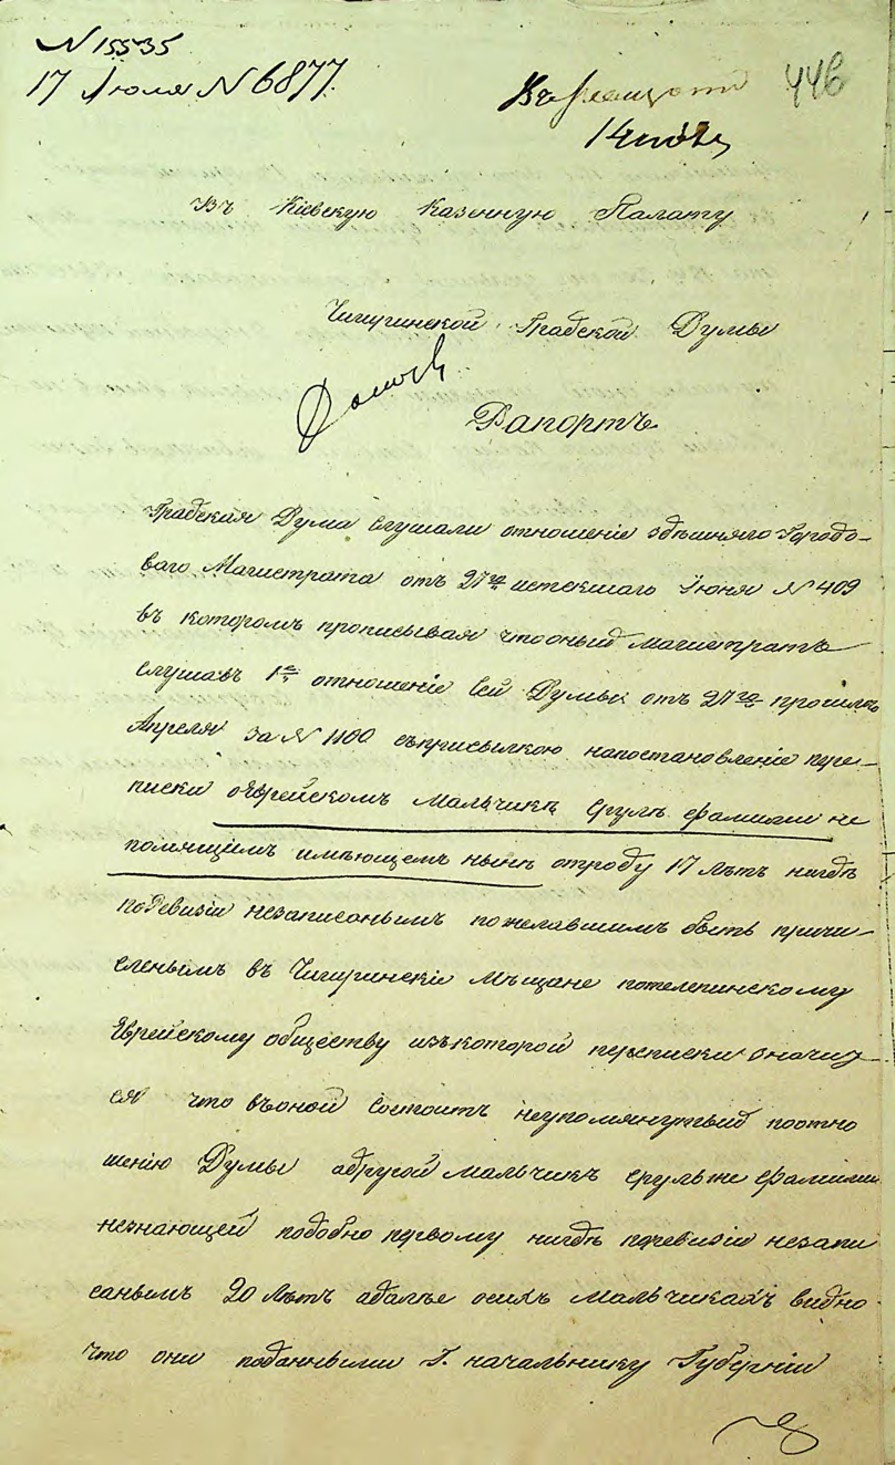 N 15535
17 Іюля N 6877.
446
14 июля
Въ Кіевскую Казенную Палату
Чигиринской Градской Думы
Рапортъ
Градская Дума слушали отношеніе здѣшняго Городо-
ваго Магистрата отъ 27го истекшаго Іюня N 409
въ которомъ прописывая что оный Магистратъ
слушавъ 1е отношеніе сей Думы отъ 27го прошлаго
Апреля за N 1100 съ присылкою на постановленіе пере-
писки о Еврейскомъ Мальчикѣ Срулѣ фамиліи не
помнящимъ имѣющемъ нынѣ отроду 17 лѣтъ нигдѣ
по Ревизіи незаписанымъ пожелавшимъ быть причи-
сленымъ въ Чигиринскіе Мѣщане по телепинскому
Еврейскому обществу изъ которой переписки оначит-
ся что въ оной состоитъ неупомянутый по отно
шенію Думы а другой мальчикъ Сруль же фамиліи
незнающей подобно первому нигдѣ по ревизіи незапи
санымъ 20 лѣтъ а далѣе о сихъ мальчикахъ видно
что они поданными Г. начальнику Губерніи